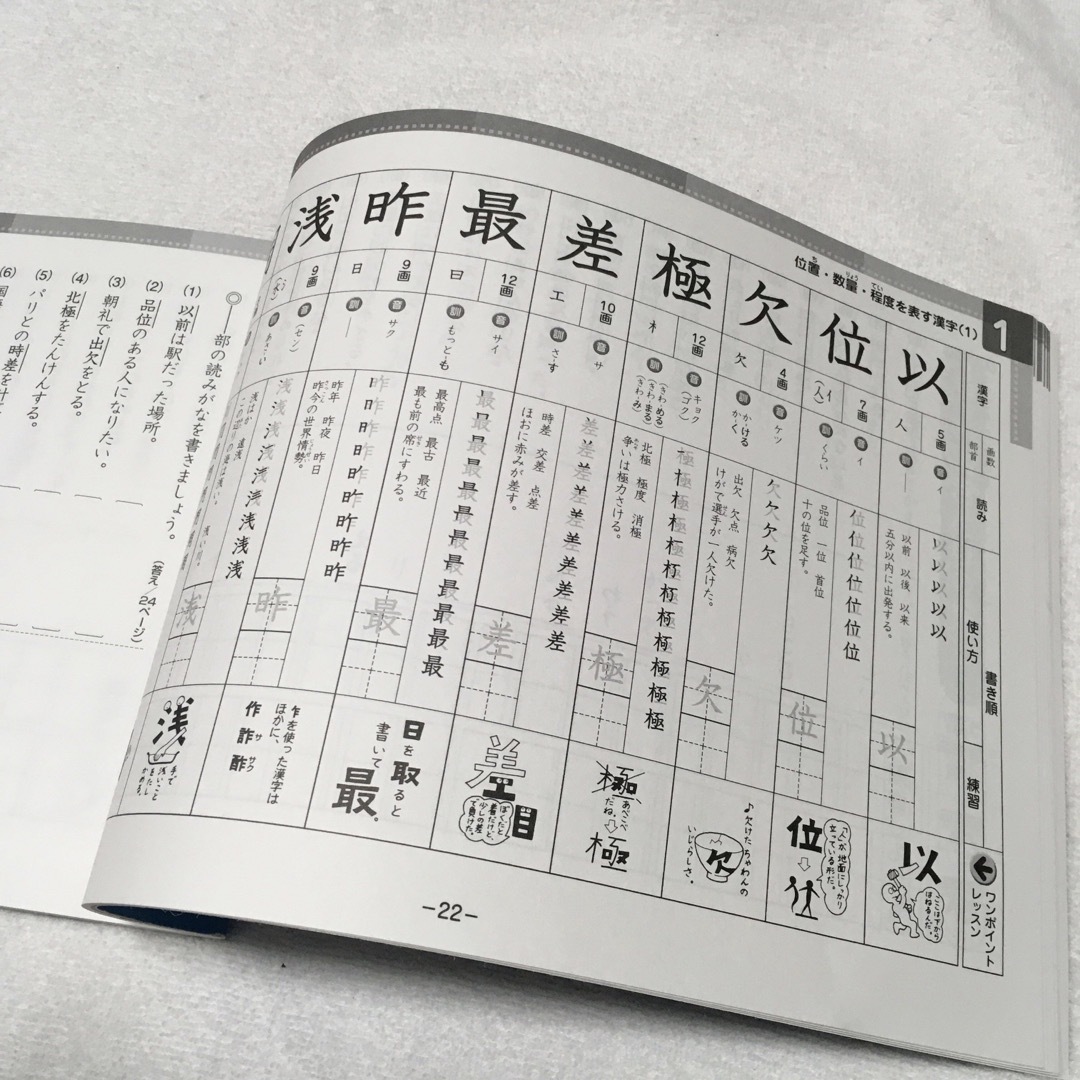 1
位置・数量・程度を表す漢字(1)
漢字
画数
部首
読み
使い方
書き順
練習
ワンポイントレッスン
以
5画
人
音 イ
訓 ―
以前 以後 以来
五分以内に出発する。
以
以
位
7画
音 イ
訓 くらい
品位 一位 首位
十の位を足す。
位位位位位位位
位
位
「人」が地面にしっかり
立っている形だ。
欠
4画
欠
音 ケツ
訓 かける
かく
出欠 欠点 病欠
けがで選手が一人欠けた。
欠欠欠欠
欠
♪欠けたちゃわんの
いじらしさ。
極
12画
木
音 キョク
(ゴク)
訓 (きわめる)
(きわまる)
(きわみ)
北極 極度 消極
争いは極力さける。
極極極極極極極極極極極極
極
あべこべ
だね。
極
差
10画
工
音 サ
訓 さす
時差 交差 点差
ほおに赤みが差す。
差差差差差差差差差差
差
差
ぼくだと
着だけど、
少しの差
で負けた。
最
12画
日
音 サイ
訓 もっとも
最高点 最古 最近
最も前の席にすわる。
最最最最最最最最最最最最
最
日を取ると
書いて
最。
昨
9画
日
音 サク
訓
昨年 昨夜 昨日
昨今の世界情勢。
昨昨昨昨昨昨昨昨昨
昨
乍を使った漢字は
ほかに、
作 詐 酢
浅
9画
音 (セン)
訓 あさい
浅浅浅浅浅浅浅浅浅
浅
浅
手で
浅いこと
をたし
かめる。
-22-
――部の読みがなを書きましょう。
(答え/24ページ)
(1) 以前は駅だった場所。
(2) 品位のある人になりたい。
(3) 朝礼で出欠をとる。
(4) 北極をたんけんする。
(5) パリとの時差を計
(6)